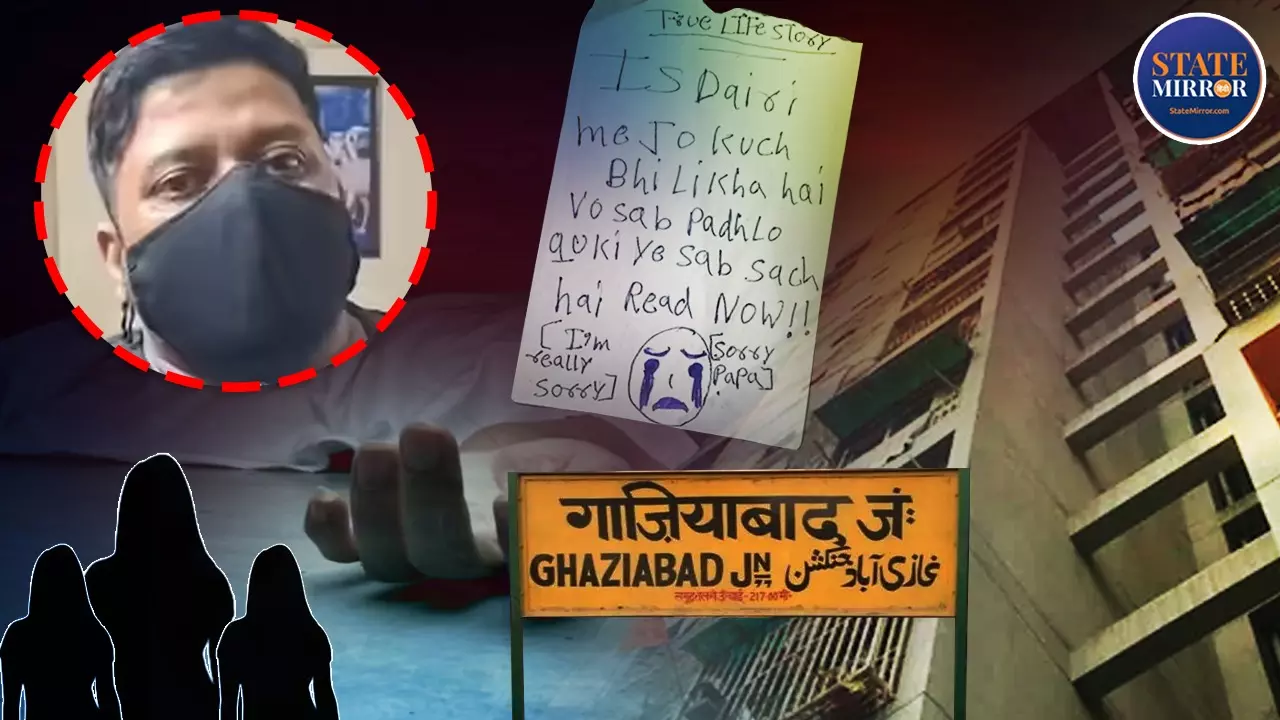 True LIfe story
Is Dairi
me Jo kuch
Bhi Likha hai
Vo sab Padhlo
quki ye sab sach
hai Read Now!!
[I'm
really
sorry]
[sorry
Papa]
STATE
MIRROR
हिंदी
StateMirror.com
गाज़ियाबाद जं॰
GHAZIABAD JN
غازی آباد جنکشن